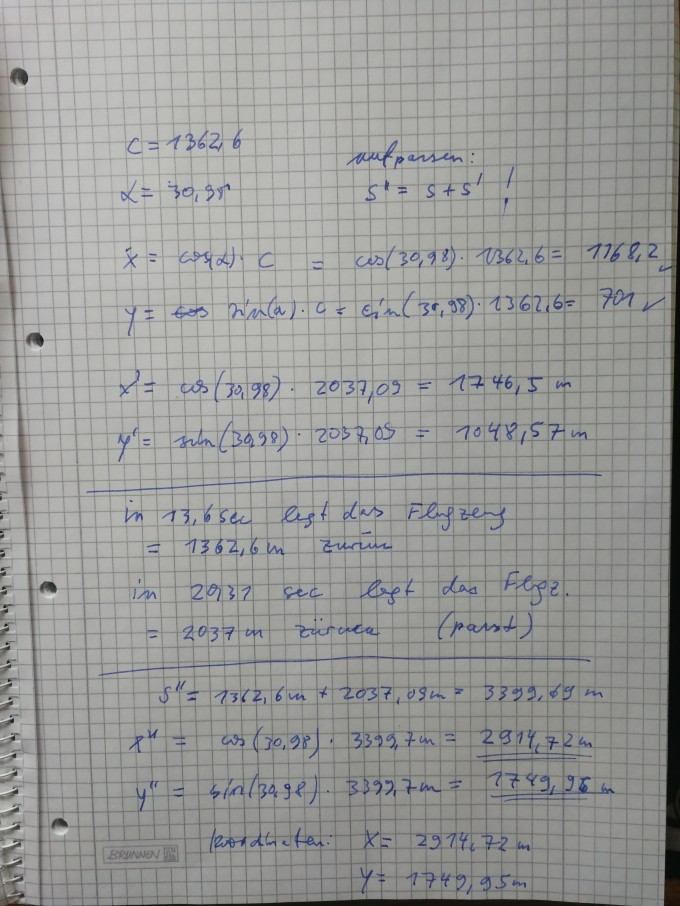 C = 1362,6
aufpassen:
α = 30,98
s" = s + s' !
x = cos(α) · C = cos(30,98) · 1362,6 = 1168,2 ✓
y = sin(α) · c = sin(30,98) · 1362,6 = 701 ✓
x' = cos(30,98) · 2037,09 = 1746,5 m
y' = sin(30,98) · 2037,09 = 1048,57 m
in 13,6 sec legt das Flugzeug
= 1362,6 m zurück
in 20,31 sec legt das Flugz.
= 2037 m zurück (passt)
s" = 1362,6 m + 2037,09 m = 3399,69 m
x" = cos(30,98) · 3399,7 m = 2914,72 m
y" = sin(30,98) · 3399,7 m = 1749,95 m
Koordinaten: X = 2914,72 m
BRUNNEN
Y = 1749,95 m